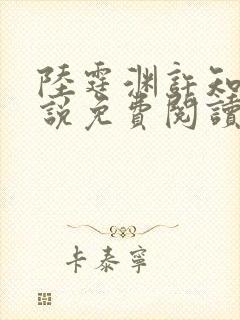 陸霆淵許知
說免費閱讀
卡泰寧